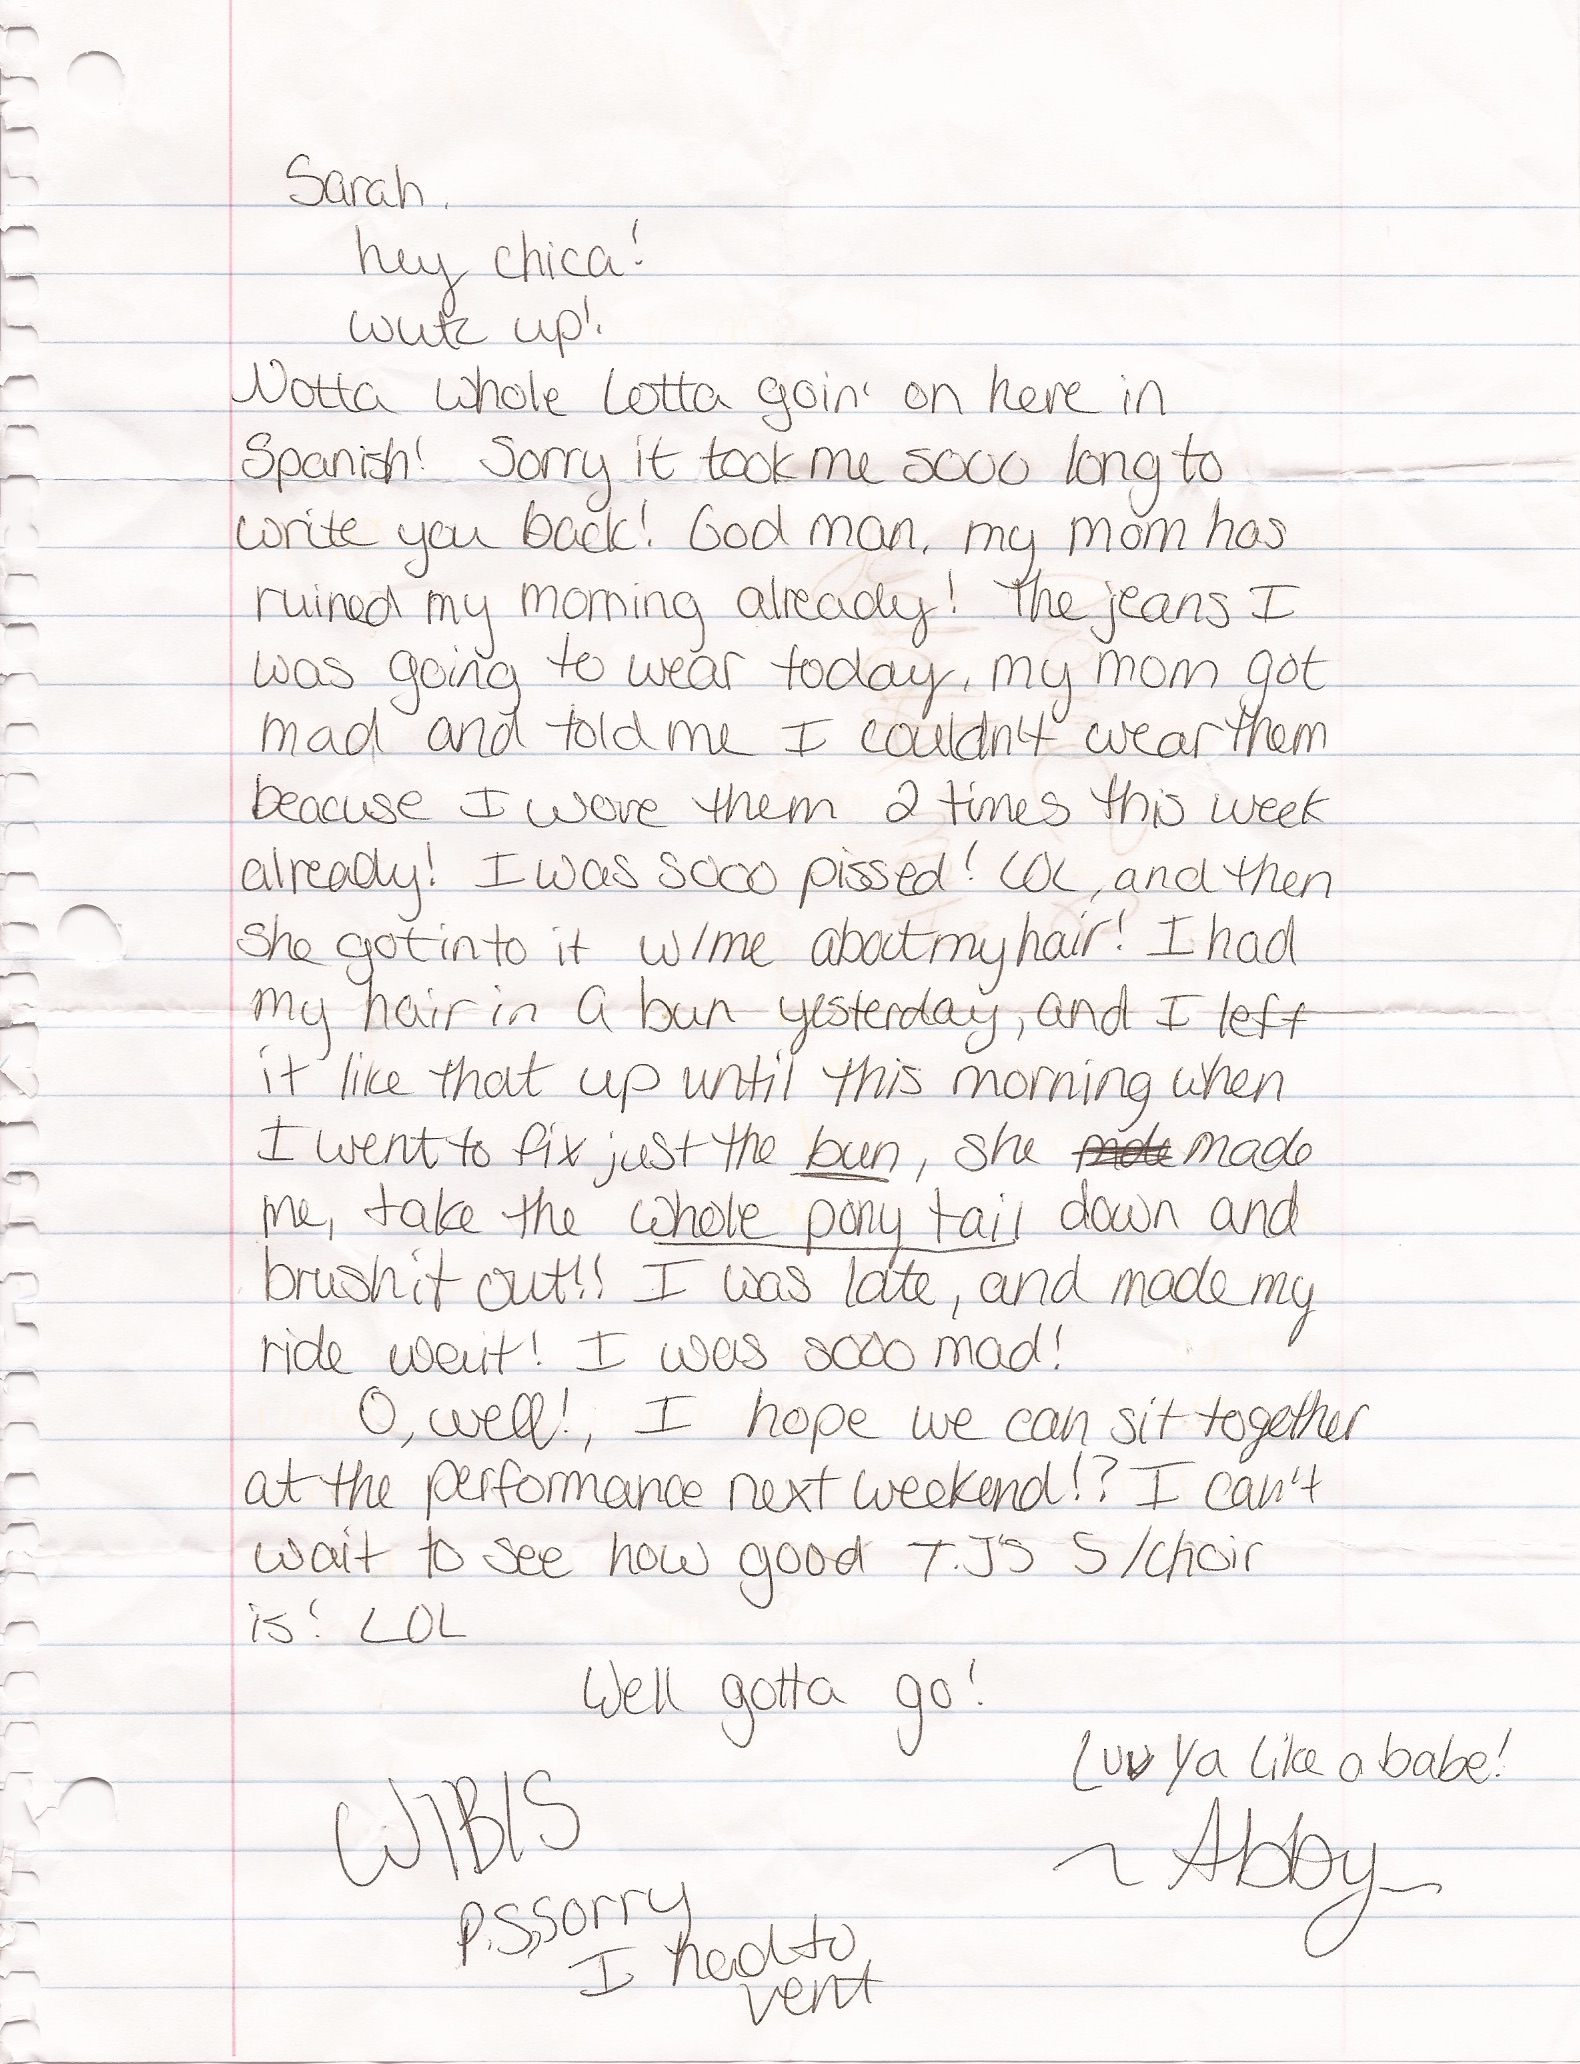 Sarah,
hey chica!
wutz up!
Notta whole Lotta goin' on here in
Spanish! Sorry it took me sooo long to
write you back! God man, my mom has
ruined my morning already! The jeans I
was going to wear today, my mom got
mad and told me I couldn't wear them
beacuse I wore them 2 times this week
already! I was sooo pissed! LOL, and then
she got into it w/me about my hair! I had
my hair in a bun yesterday, and I left
it like that up until this morning when
I went to fix just the bun, she made
me, take the whole pony tail down and
brush it out!! I was late, and made my
ride wait! I was sooo mad!
O, well!, I hope we can sit together
at the performance next weekend!? I can't
wait to see how good T.J's S/choir
is! LOL
Well gotta go!
Luv Ya Like a babe!
W/B/S
~Abby~
P.S, sorry
I had to
vent